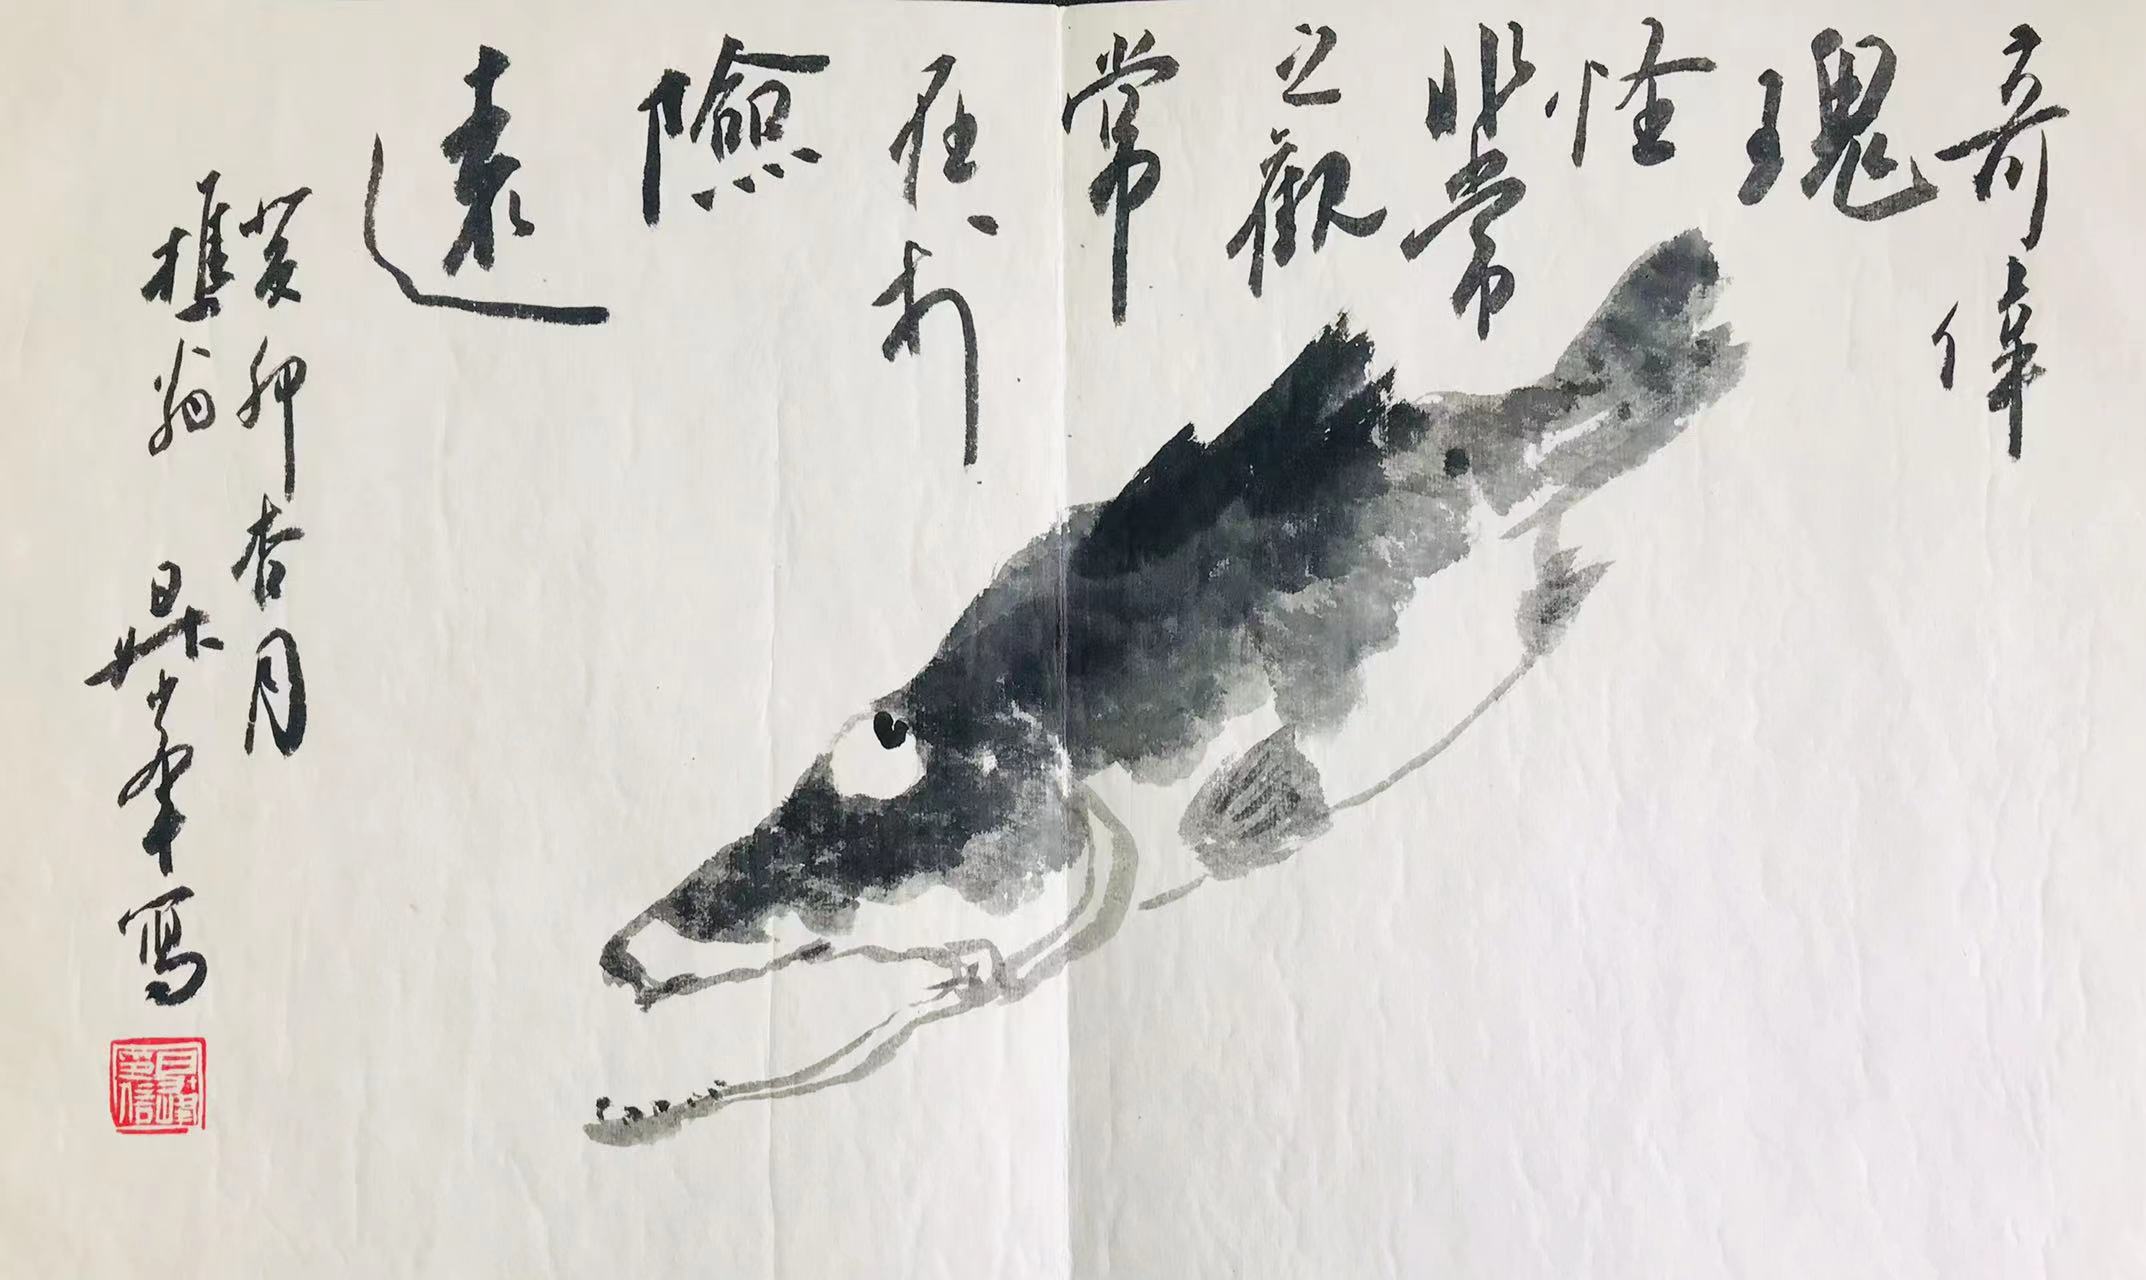 奇偉
瑰
怪
非常
之觀
常
在於
險
遠
癸卯杏月
樵翁
寫